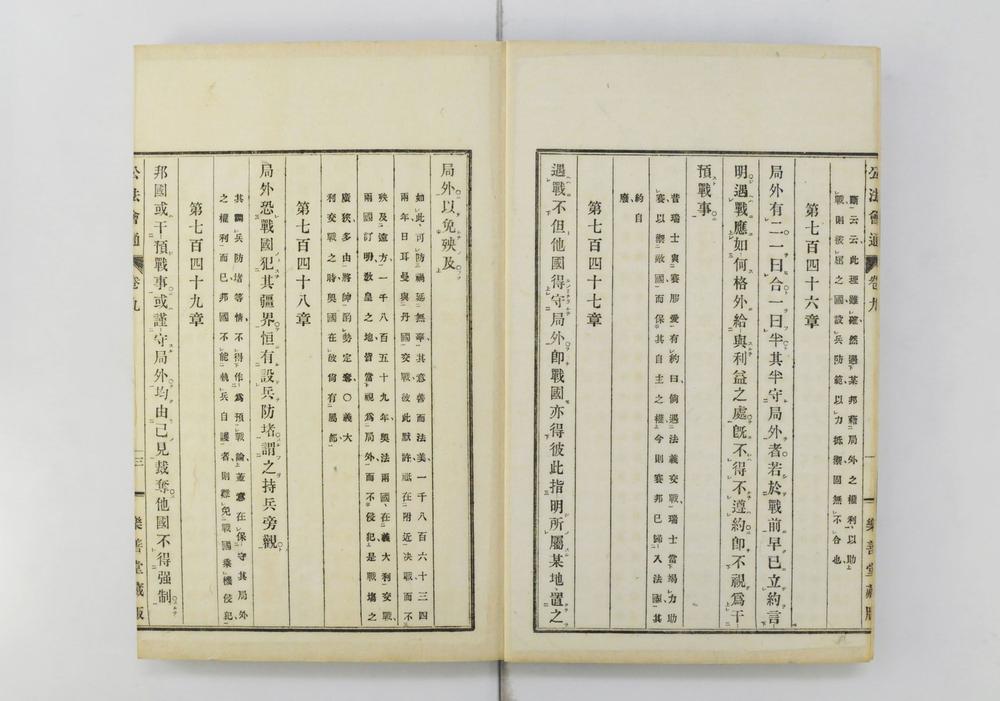 公法會通 卷九 一 樂善堂藏版
斷云云此理雖確然遇某邦藉局外之權利以助
戰則被屈之國設兵防範以力抵禦固無不合也
第七百四十六章
局外有二一曰合一曰半其半守局外者若於戰前早已立約言
明遇戰應如何格外給與利益之處既不得不遵約卽不視爲干
預戰事
昔瑞士與賽那愛有約曰倘遇法義交戰瑞士當竭力助
賽以禦敵國而保其自主之權今則賽邦已歸入法國其
約自
廢
第七百四十七章
遇戰不但他國得守局外卽戰國亦得彼此指明所屬某地置之
局外以免殃及
如此可防禍延無辜其意善而法美一千八百六十三四
兩年日耳曼與丹國交戰彼此默許祇在附近決戰而不
殃及遠方一千八百五十九年奧法兩國在義大利交戰
兩國訂明教皇之地皆當視爲局外而不侵犯是戰場之
廣狹多由將帥酌勢定奪〇義大
利交戰之時奧國在彼尙有屬部
第七百四十八章
局外恐戰國犯其疆界恒有設兵防堵謂之持兵旁觀
其調兵防堵等情不得作爲預戰論蓋意在保守其局外
之權利而已邦國不能執兵自護者則難免戰國乘機侵犯
第七百四十九章
邦國或干預戰事或謹守局外均由己見裁奪他國不得强制
公法會通 卷九 三 樂善堂藏版